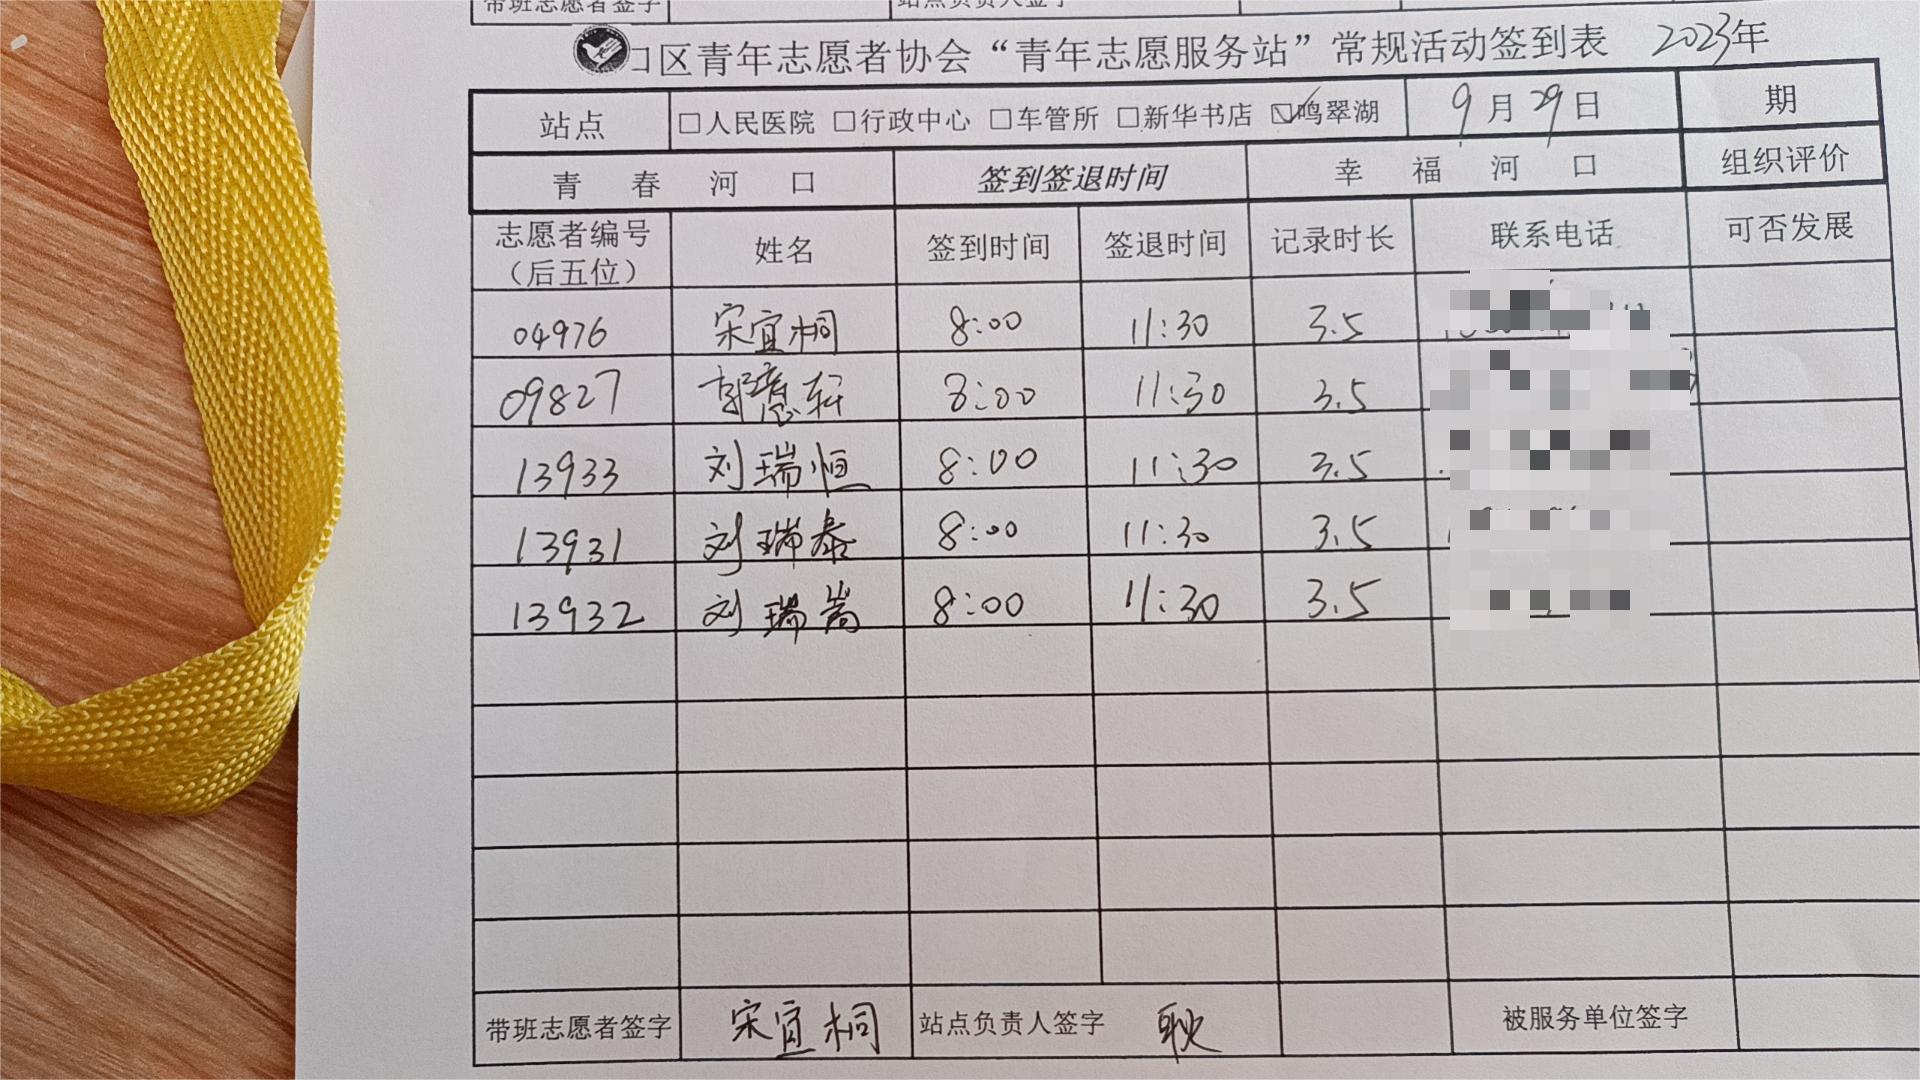 带班志愿者签字 站点负责人签字
口区青年志愿者协会“青年志愿服务站”常规活动签到表 2023年
站点 □人民医院 □行政中心 □车管所 □新华书店 ☑鸣翠湖 9月29日 期
青春河口 签到签退时间 幸福河口 组织评价
志愿者编号（后五位） 姓名 签到时间 签退时间 记录时长 联系电话 可否发展
04976 宋宜桐 8:00 11:30 3.5
09827 郭意轩 8:00 11:30 3.5
13933 刘瑞恒 8:00 11:30 3.5
13931 刘瑞泰 8:00 11:30 3.5
13932 刘瑞嵩 8:00 11:30 3.5
带班志愿者签字 宋宜桐 站点负责人签字 耿 被服务单位签字